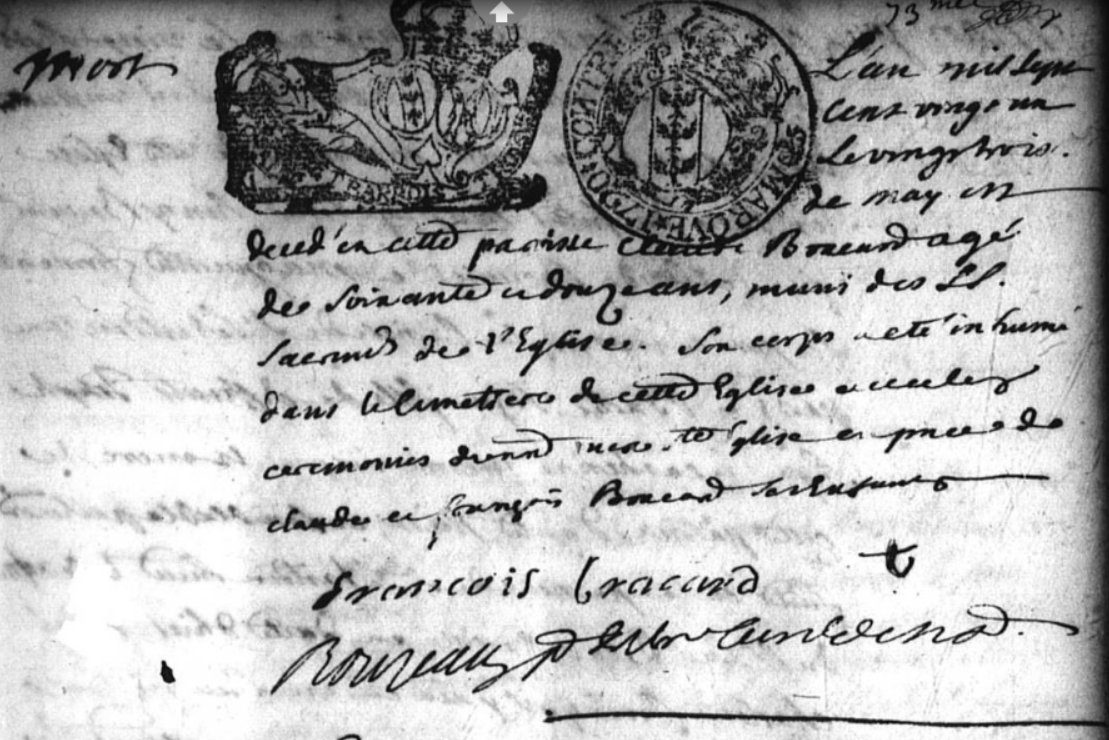 73 me
mort
L'an mil sept
cent vingt un
Le vingt trois.
de may est
decedé en cette paroisse claude Boucard agé
de soixante et douze ans, muni des SS.
sacremts de l'Eglise. Son corps a eté inhumé
dans le cimettiere de cette Eglise avec les
ceremonies de nre mere ste église en pnce de
claude et françois Boucard ses Enfants
francois Bracard t
Bouzeau curé de